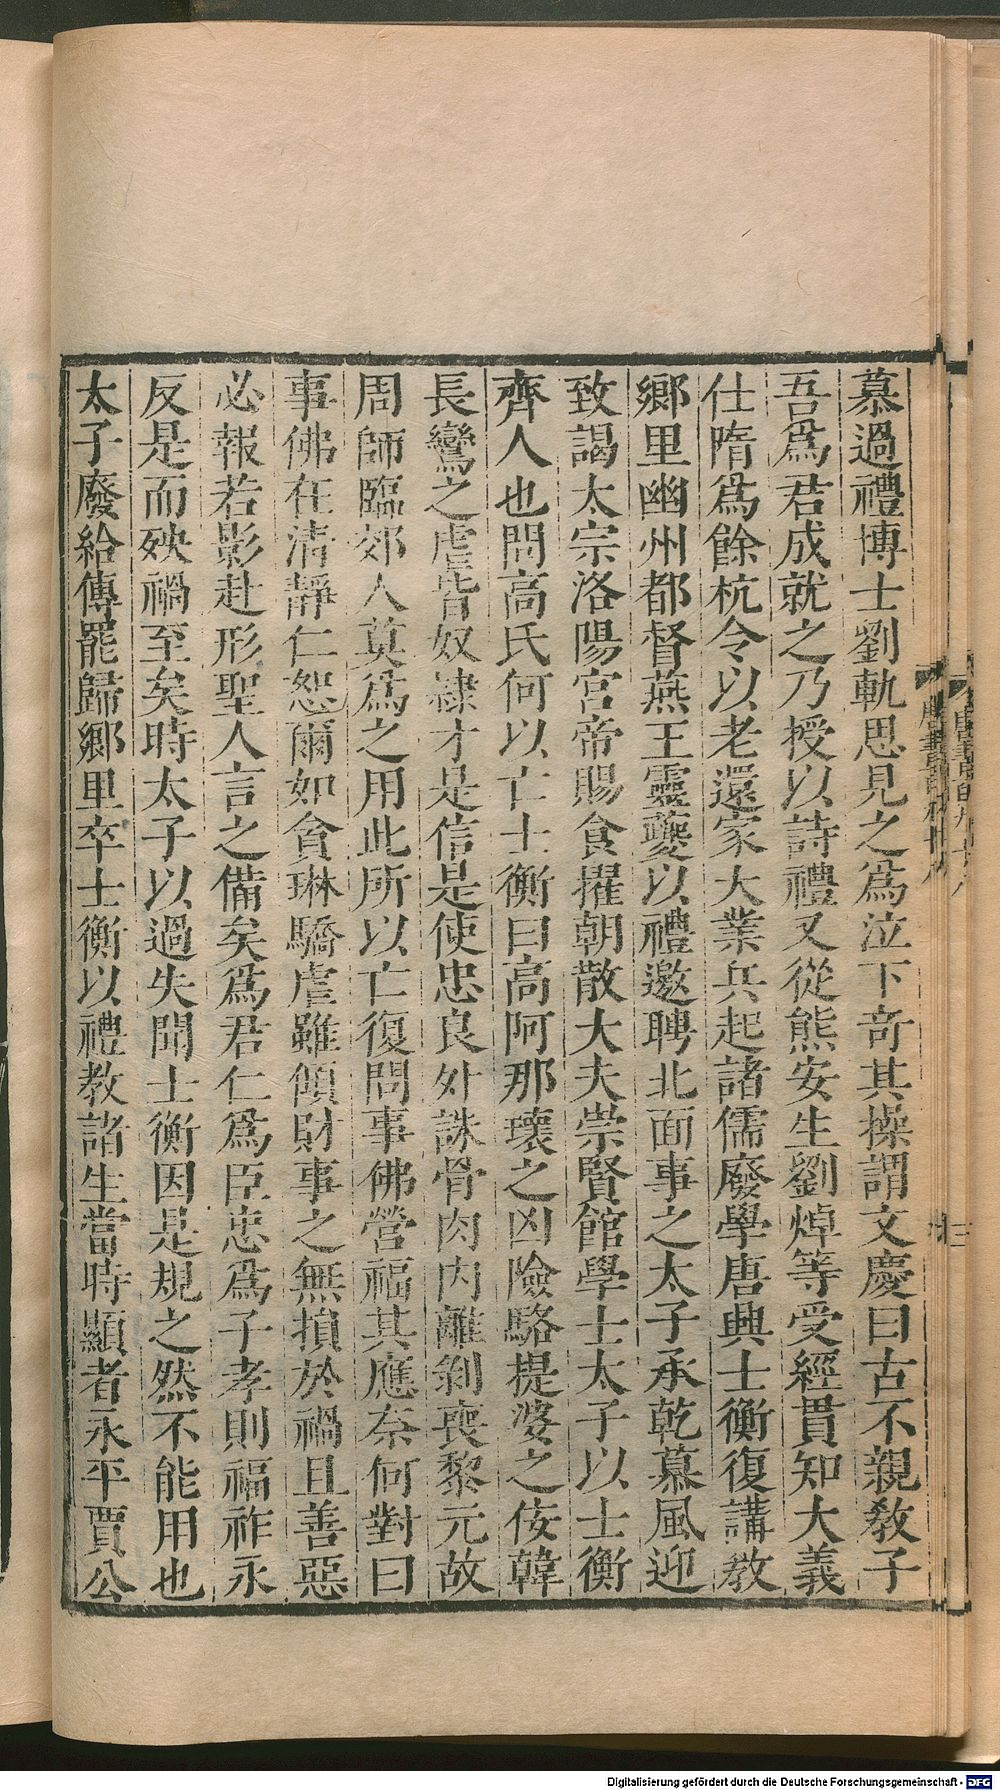 慕過禮博士劉軌思見之爲泣下奇其操謂文慶曰古不親敎子
吾爲君成就之乃授以詩禮又從熊安生劉焯等受經貫知大義
仕隋爲餘杭令以老還家大業兵起諸儒廢學唐興士衡復講敎
鄉里幽州都督燕王靈夔以禮邀聘北面事之太子承乾慕風迎
致謁太宗洛陽宮帝賜食擢朝散大夫崇賢館學士太子以士衡
齊人也問高氏何以亡士衡曰高阿那瓌之凶險駱提婆之佞韓
長鸞之虐皆奴隸才是信是使忠良外誅骨肉內離剝喪黎元故
周師臨郊人莫爲之用此所以亡復問事佛營福其應奈何對曰
事佛在清靜仁恕爾如貪琳驕虐雖傾財事之無損於禍且善惡
必報若影赴形聖人言之備矣爲君仁爲臣忠爲子孝則福祚永
反是而殃禍至矣時太子以過失聞士衡因是規之然不能用也
太子廢給傳罷歸鄉里卒士衡以禮教諸生當時顯者永平賈公
Digitalisierung gefördert durch die Deutsche Forschungsgemeinschaft - DFG